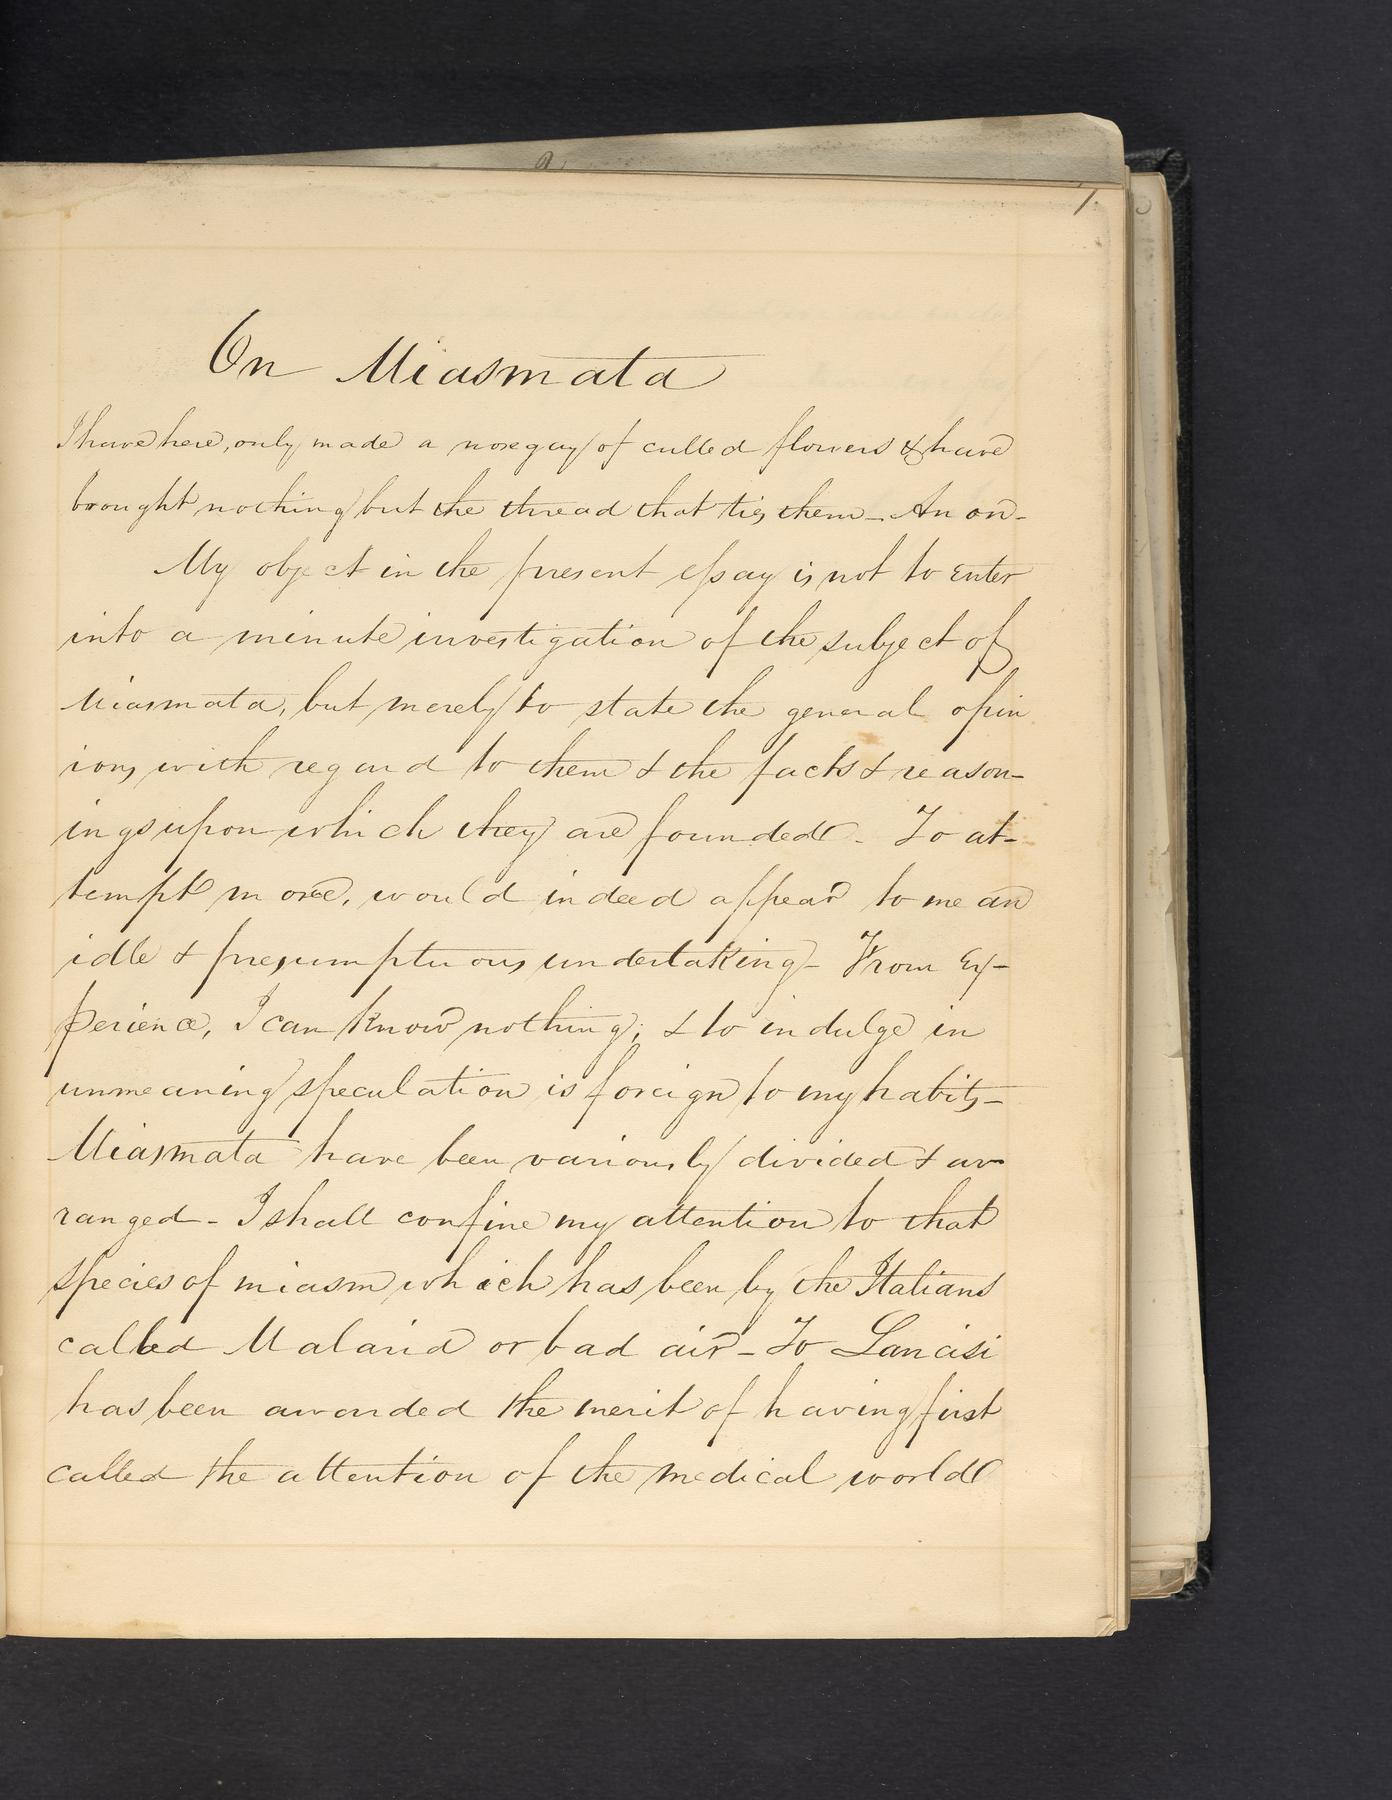 1.
On Miasmata
I have here, only made a nosegay of culled flowers & have
brought nothing but the thread that ties them — An on -
My object in the present essay is not to enter
into a minute investigation of the subject of
Miasmata, but merely to state the general opin
ions with regard to them & the facts & reason-
ings upon which they are founded. To at-
tempt more, would indeed appear to me an
idle & presumptuous undertaking - From Ex-
perience, I can know nothing; & to indulge in
unmeaning speculation is foreign to my habits -
Miasmata have been variously divided & ar
ranged - I shall confine my attention to that
species of miasm which has been by the Italians
called Malaria or bad air - To Lancisi
has been awarded the merit of having first
called the attention of the medical world